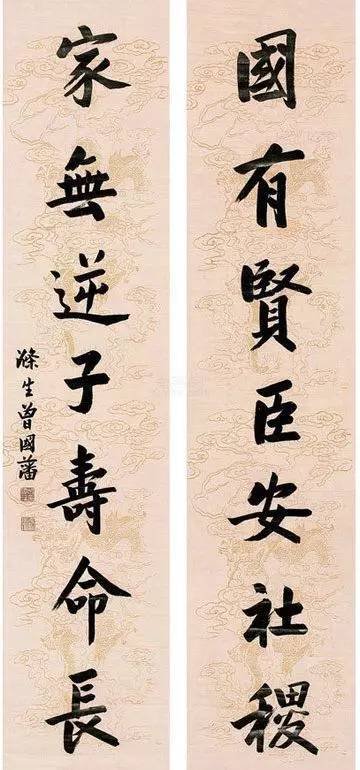 國有賢臣安社稷
家無逆子壽命長
滌生曾國藩